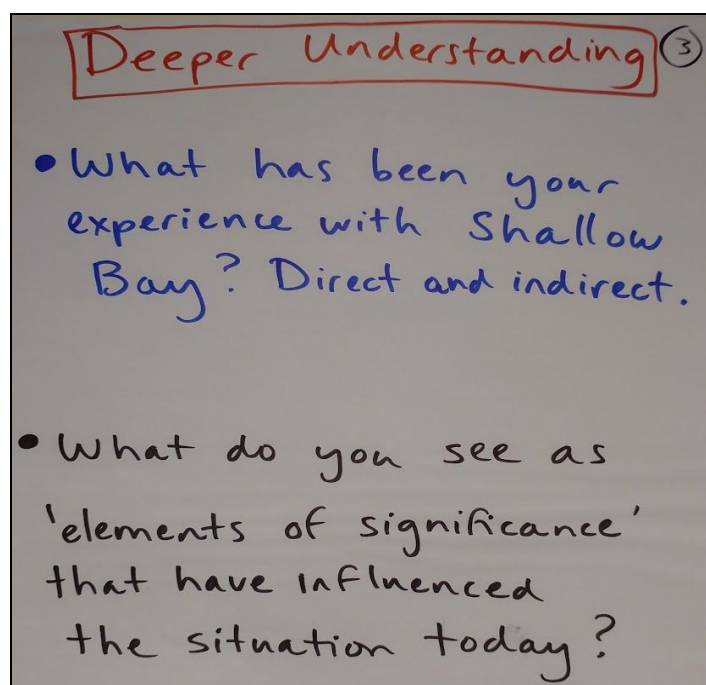 Deeper Understanding 3
• What has been your
experience with Shallow
Bay? Direct and indirect.
• What do you see as
'elements of significance'
that have influenced
the situation today?